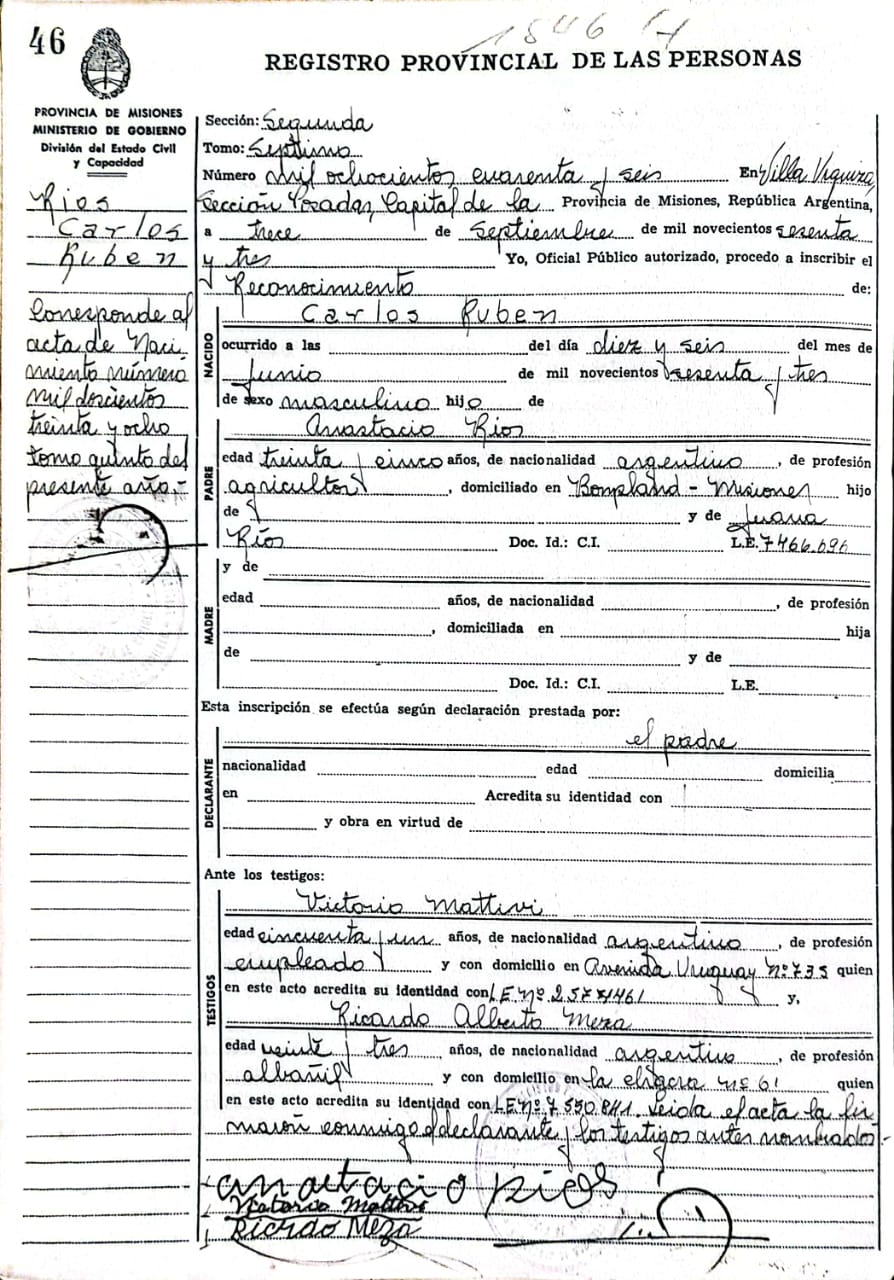 1846 H
46
REGISTRO PROVINCIAL DE LAS PERSONAS
PROVINCIA DE MISIONES
MINISTERIO DE GOBIERNO
División del Estado Civil
y Capacidad
Rios
Carlos
Ruben
Corresponde al
acta de Naci
miento número
mil doscientos
treinta y ocho
tomo quinto del
presente año.-
Sección: Segunda
Tomo: Septimo
Número mil ochocientos cuarenta y seis En Villa Urquiza,
Sección Posadas, Capital de la Provincia de Misiones, República Argentina,
a trece de Septiembre de mil novecientos sesenta
y tres Yo, Oficial Público autorizado, procedo a inscribir el
Reconocimiento de:
NACIDO
Carlos Ruben
ocurrido a las del día diez y seis del mes de
Junio de mil novecientos sesenta y tres
de sexo masculino hijo de
PADRE
Anastacio Rios
edad treinta y cinco años, de nacionalidad argentino, de profesión
agricultor, domiciliado en Bompland - Misiones hijo
de y de Juana
Ríos Doc. Id.: C.I. L.E. 7466.696
MADRE
y de
edad años, de nacionalidad , de profesión
, domiciliada en hija
de y de
Doc. Id.: C.I. L.E.
Esta inscripción se efectúa según declaración prestada por:
DECLARANTE
el padre
nacionalidad edad domicilia
en Acredita su identidad con
y obra en virtud de
Ante los testigos:
TESTIGOS
Victorio Mattivi
edad cincuenta y un años, de nacionalidad argentino, de profesión
empleado y con domicilio en Avenida Uruguay Nº 735 quien
en este acto acredita su identidad con L.E. Nº 2574461 y,
Ricardo Alberto Meza
edad veinte y tres años, de nacionalidad argentino, de profesión
albañil y con domicilio en La nº 61 quien
en este acto acredita su identidad con L.E. Nº 7.550.841. Leida el acta la fir
maron conmigo el declarante y los testigos antes nombrados.-
anastacio rios
Victorio Mattivi
Ricardo Meza